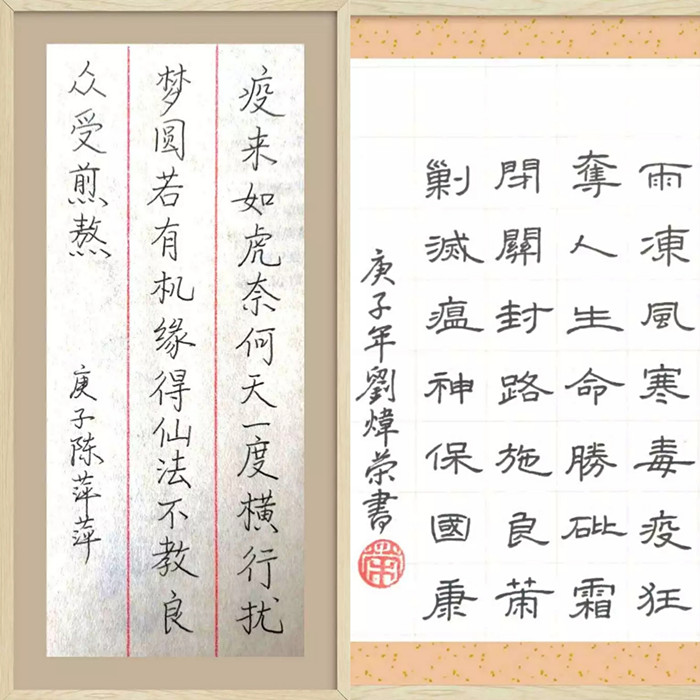 疫来如虎奈何天一度横行扰
梦圆若有机缘得仙法不教良
众受煎熬
庚子陈萍萍
雨凍風寒毒疫狂
奪人生命勝砒霜
閉關封路施良
剿滅瘟神保國康
庚子年劉煒荣書